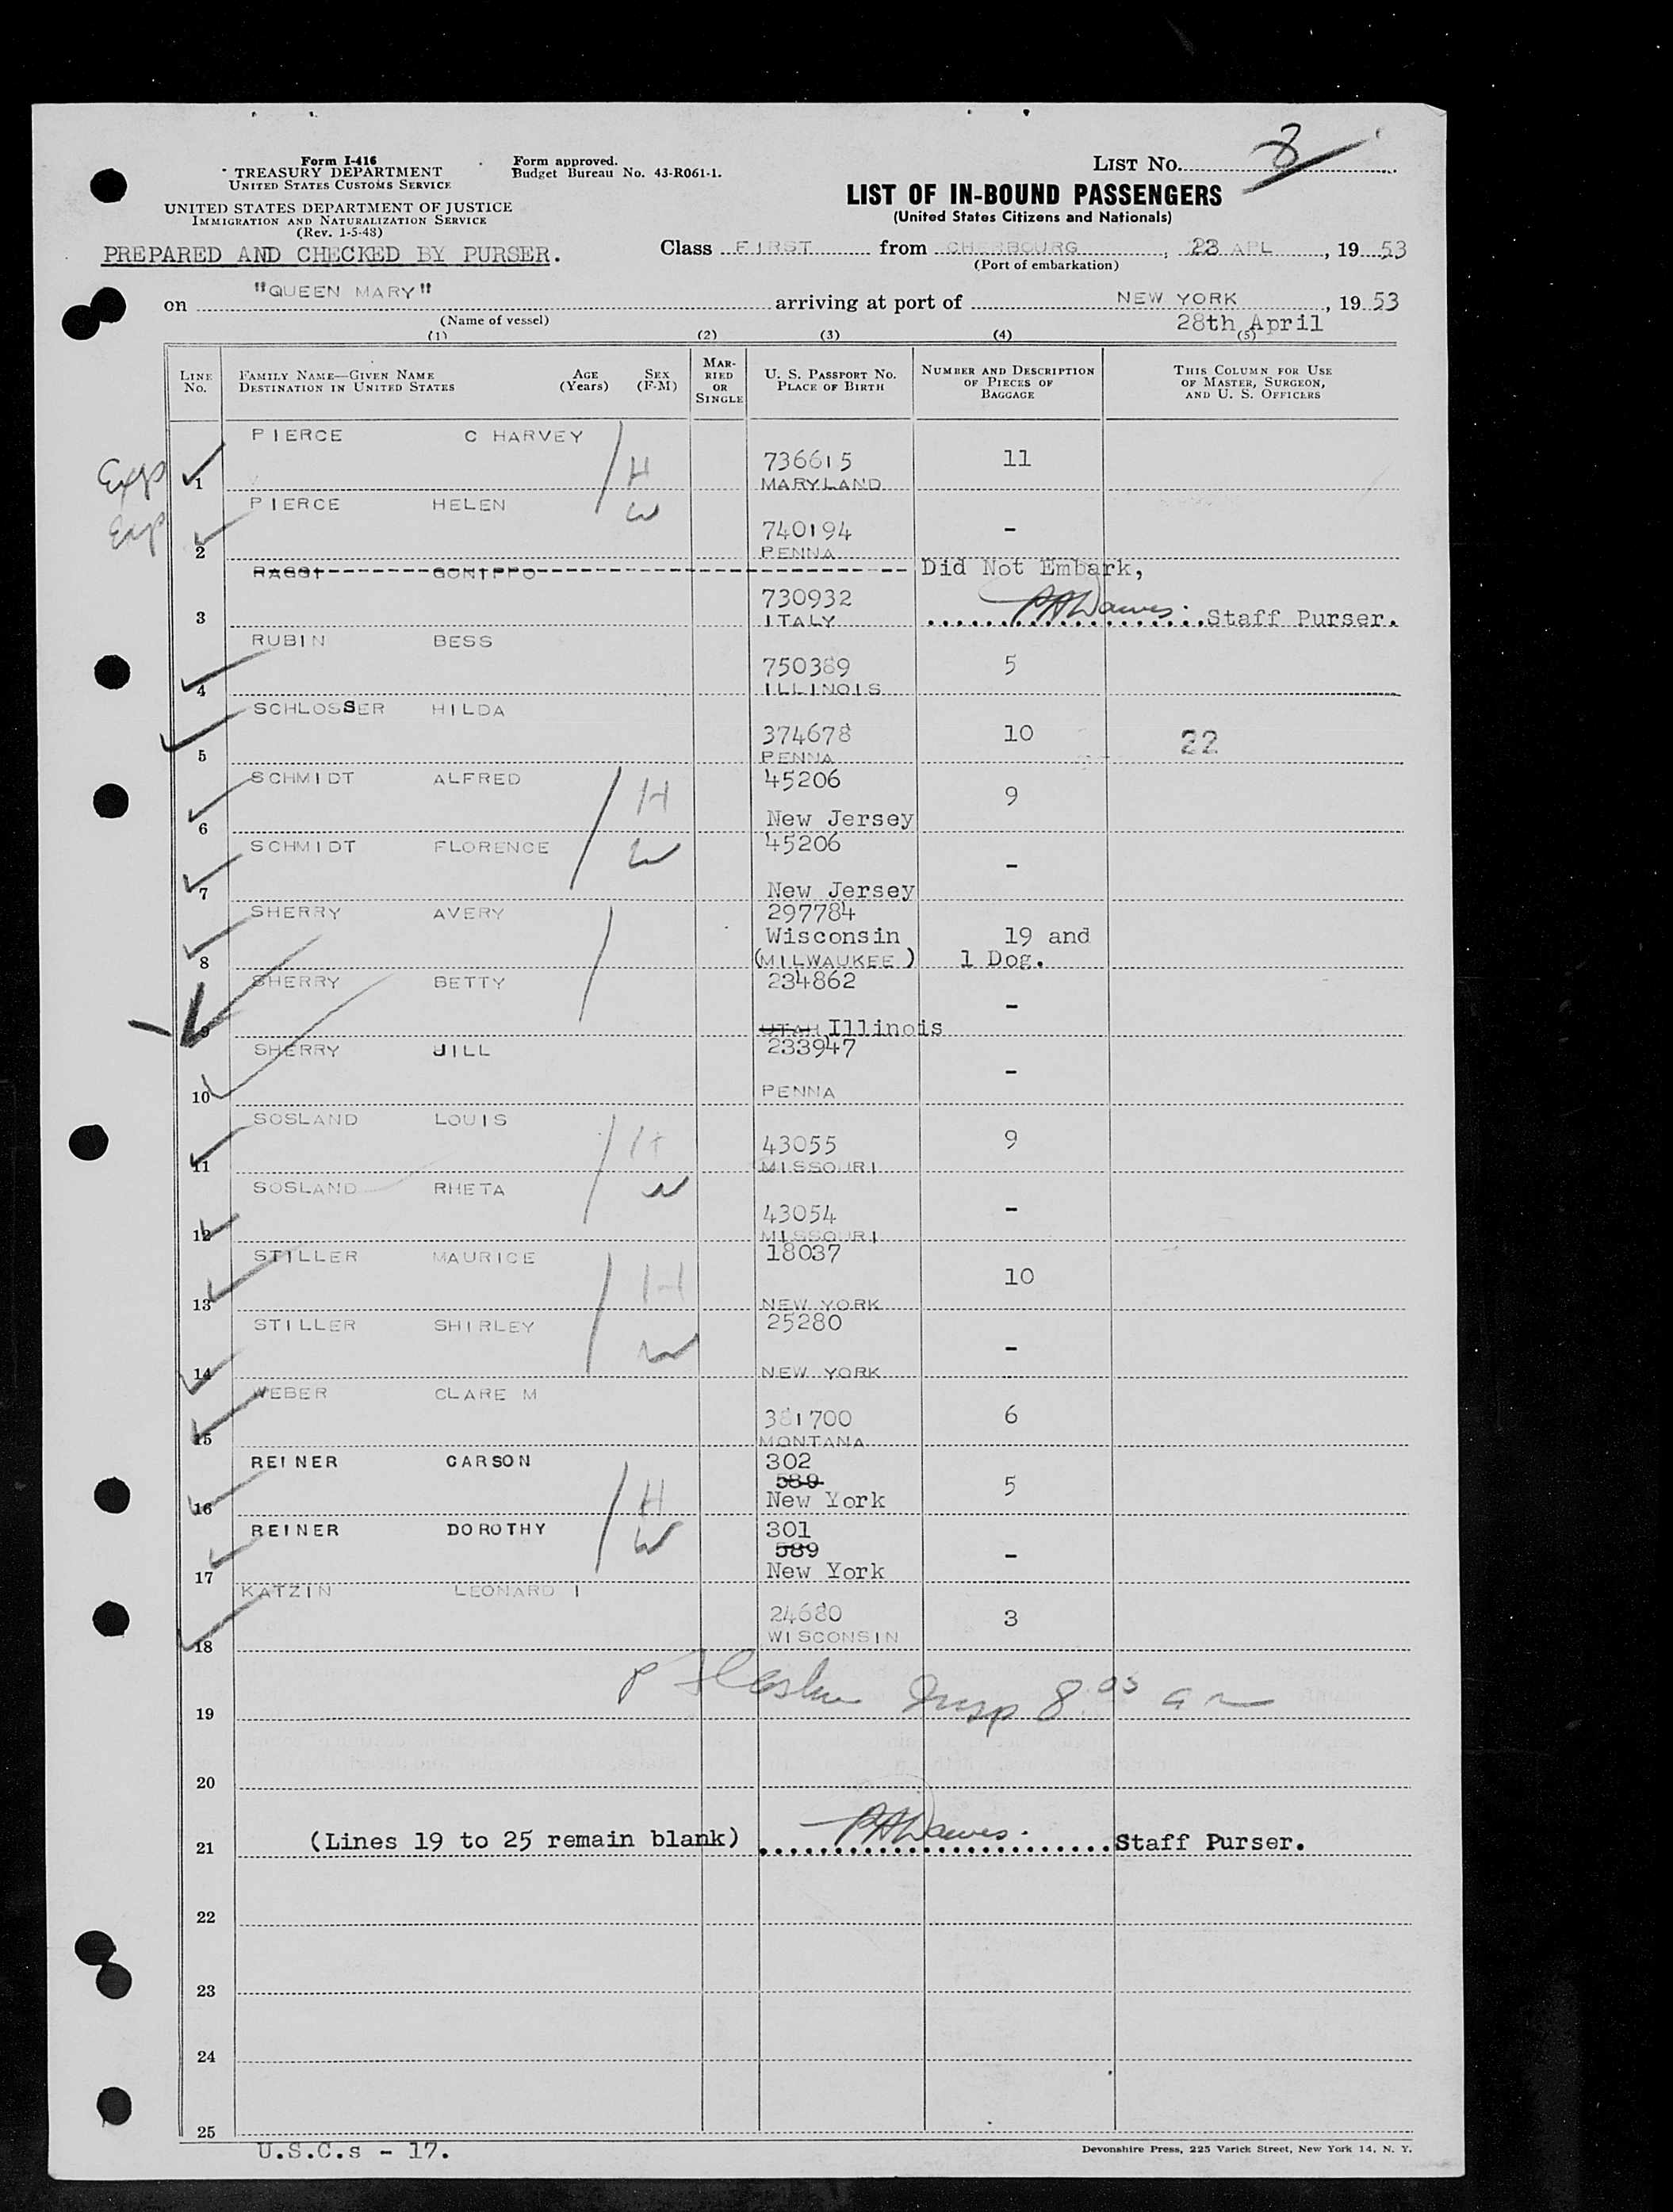 Form I-416
TREASURY DEPARTMENT
UNITED STATES CUSTOMS SERVICE
Form approved.
Budget Bureau No. 43-R061-1.
LIST NO. 8
UNITED STATES DEPARTMENT OF JUSTICE
IMMIGRATION AND NATURALIZATION SERVICE
(Rev. 1-5-48)
LIST OF IN-BOUND PASSENGERS
(United States Citizens and Nationals)
PREPARED AND CHECKED BY PURSER.
Class FIRST from CHERBOURG, 23 APL, 19 53
(Port of embarkation)
on "QUEEN MARY" arriving at port of NEW YORK, 19 53
(Name of vessel)
28th April
(1) (2) (3) (4) (5)
LINE No. FAMILY NAME—GIVEN NAME DESTINATION IN UNITED STATES AGE (Years) SEX (F-M) MARRIED OR SINGLE U. S. PASSPORT NO. PLACE OF BIRTH NUMBER AND DESCRIPTION OF PIECES OF BAGGAGE THIS COLUMN FOR USE OF MASTER, SURGEON, AND U. S. OFFICERS
PIERCE C HARVEY
Exp 1 H 736615 11
MARYLAND
PIERCE HELEN W
Exp 2 740194 -
PENNA
Did Not Embark,
730932
3 ITALY P A Dawes. Staff Purser.
RUBIN BESS
750389 5
4 ILLINOIS
SCHLOSSER HILDA
374678 10 22
5 PENNA
SCHMIDT ALFRED 45206
H 9
6 New Jersey
SCHMIDT FLORENCE 45206
W -
7 New Jersey
SHERRY AVERY 297784
Wisconsin 19 and
8 (MILWAUKEE) 1 Dog.
SHERRY BETTY 234862
-
9 UTAH Illinois
SHERRY JILL 233947
-
10 PENNA
SOSLAND LOUIS
H 43055 9
11 MISSOURI
SOSLAND RHETA
W 43054 -
12 MISSOURI
STILLER MAURICE 18037
H 10
13 NEW YORK
STILLER SHIRLEY 25280
W -
14 NEW YORK
WEBER CLARE M
381700 6
15 MONTANA
REINER CARSON 302
H 589 5
16 New York
REINER DOROTHY 301
W 589 -
17 New York
KATZIN LEONARD I
24680 3
18 WISCONSIN
Insp 8.05 am
19
20
21 (Lines 19 to 25 remain blank) P A Dawes. Staff Purser.
22
23
24
25
U.S.C.s - 17.
Devonshire Press, 225 Varick Street, New York 14, N. Y.